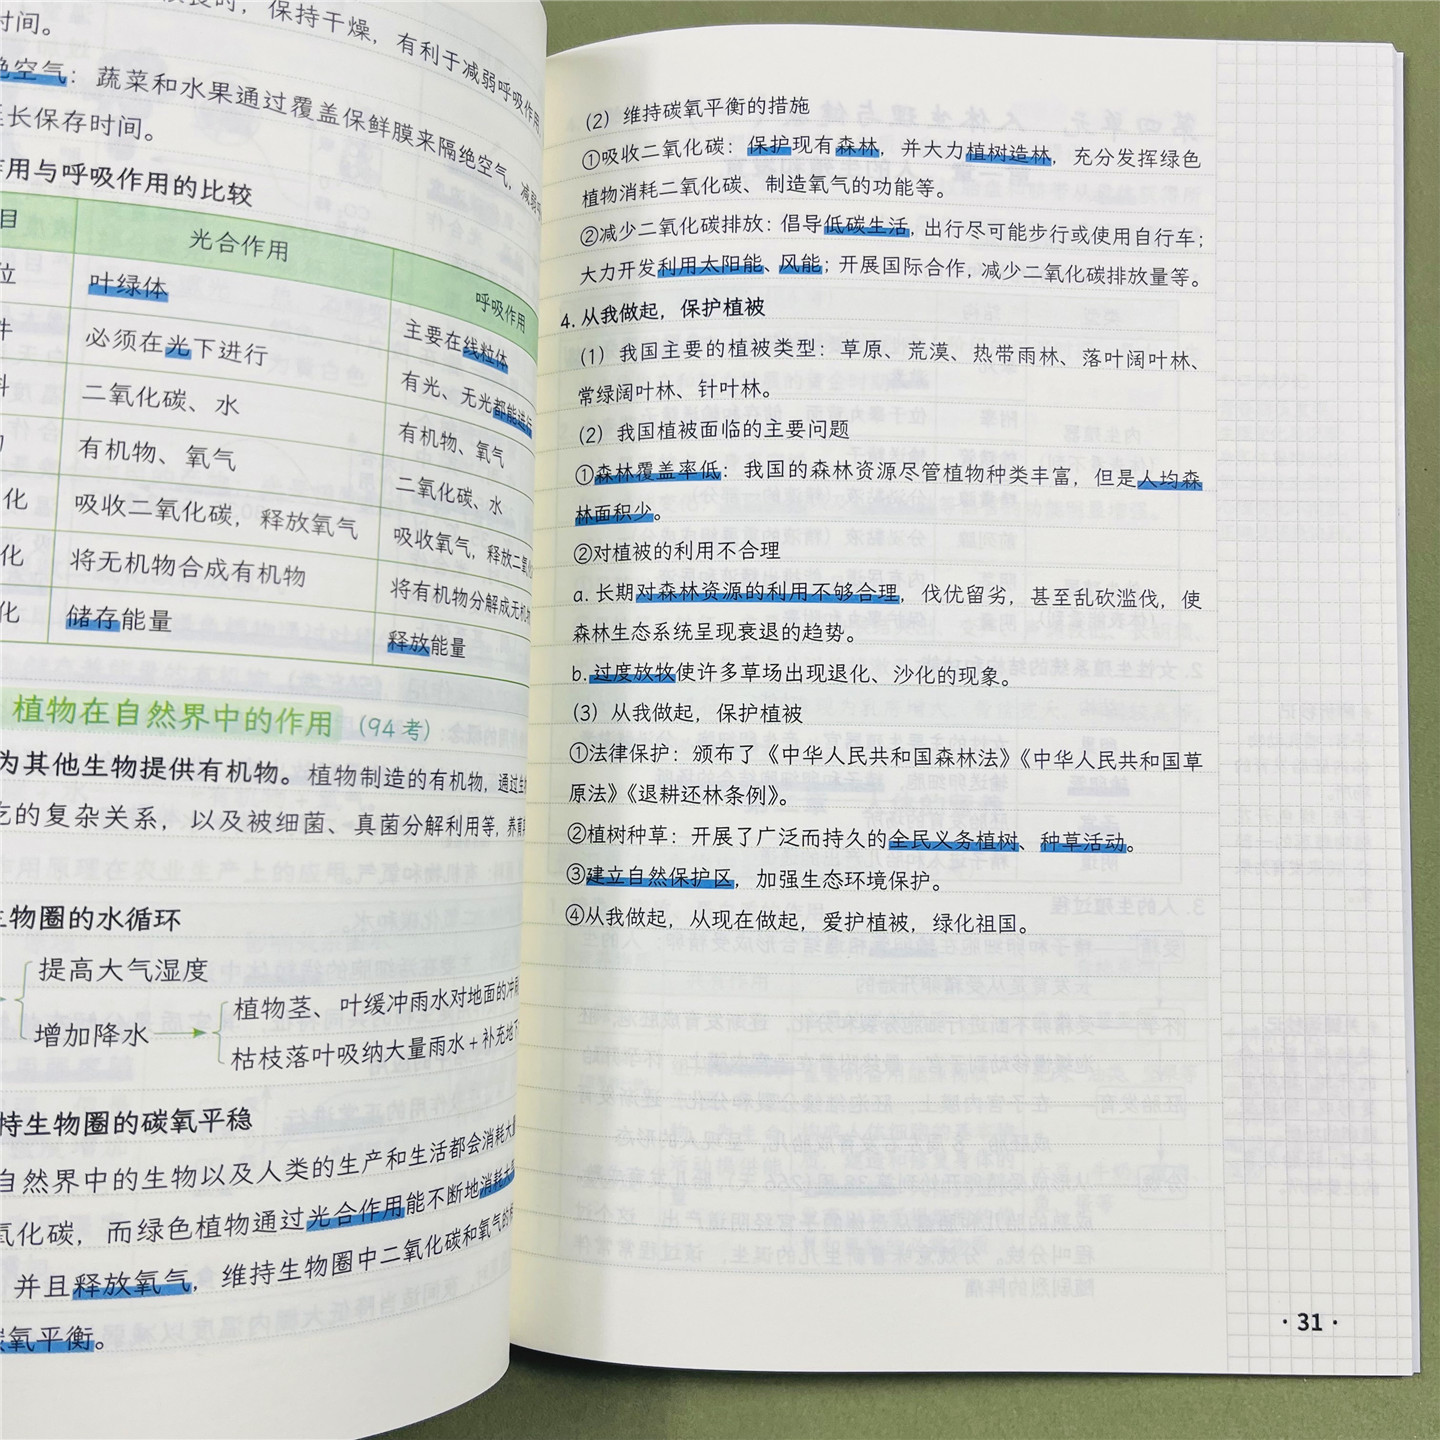 时，保持干燥，有利于减弱呼吸作用
时间。
绝空气：蔬菜和水果通过覆盖保鲜膜来隔绝空气，减弱
延长保存时间。
作用与呼吸作用的比较
目 光合作用 呼吸作用
位 叶绿体 主要在线粒体
件 必须在光下进行 有光、无光都能进行
料 二氧化碳、水 有机物、氧气
物 有机物、氧气 二氧化碳、水
化 吸收二氧化碳，释放氧气 吸收氧气，释放二氧化
化 将无机物合成有机物 将有机物分解成无机物
化 储存能量 释放能量
植物在自然界中的作用（94考）
为其他生物提供有机物。植物制造的有机物，通过
吃的复杂关系，以及被细菌、真菌分解利用等，养育
生物圈的水循环
提高大气湿度
增加降水
植物茎、叶缓冲雨水对地面的冲刷
枯枝落叶吸纳大量雨水+补充地下
持生物圈的碳氧平稳
自然界中的生物以及人类的生产和生活都会消耗大
氧化碳，而绿色植物通过光合作用能不断地消耗大
并且释放氧气，维持生物圈中二氧化碳和氧气的
碳氧平衡。
（2）维持碳氧平衡的措施
①吸收二氧化碳：保护现有森林，并大力植树造林，充分发挥绿色
植物消耗二氧化碳、制造氧气的功能等。
②减少二氧化碳排放：倡导低碳生活，出行尽可能步行或使用自行车；
大力开发利用太阳能、风能；开展国际合作，减少二氧化碳排放量等。
4. 从我做起，保护植被
（1）我国主要的植被类型：草原、荒漠、热带雨林、落叶阔叶林、
常绿阔叶林、针叶林。
（2）我国植被面临的主要问题
①森林覆盖率低：我国的森林资源尽管植物种类丰富，但是人均森
林面积少。
②对植被的利用不合理
a. 长期对森林资源的利用不够合理，伐优留劣，甚至乱砍滥伐，使
森林生态系统呈现衰退的趋势。
b. 过度放牧使许多草场出现退化、沙化的现象。
（3）从我做起，保护植被
①法律保护：颁布了《中华人民共和国森林法》《中华人民共和国草
原法》《退耕还林条例》。
②植树种草：开展了广泛而持久的全民义务植树、种草活动。
③建立自然保护区，加强生态环境保护。
④从我做起，从现在做起，爱护植被，绿化祖国。
· 31 ·